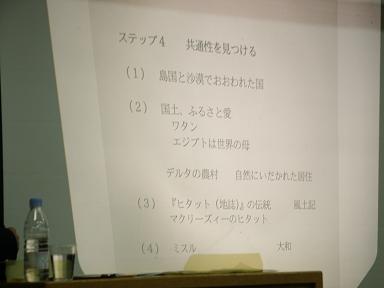 ステップ4　共通性を見つける
(1)　島国と沙漠でおおわれた国
(2)　国土、ふるさと愛
ワタン
エジプトは世界の母
デルタの農村　自然にいだかれた居住
(3)　『ヒタット（地誌）』の伝統　風土記
マクリーズィーのヒタット
(4)　ミスル　大和